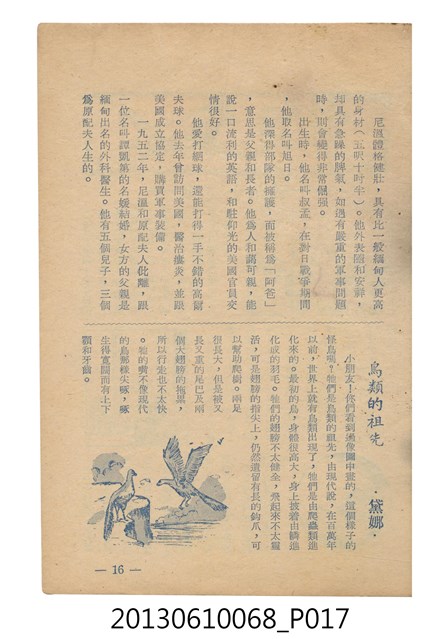 尼溫體格健壯，具有比一般緬甸人更高
的身材（五呎十時半）。他外表溫和安靜，
却具有急躁的脾氣，如遇有嚴重的軍事問題
時，則會變得非常倔强。
出生時，他名叫叔孟，在對日戰爭期間
，他取名叫旭日。
他深得部隊的擁護，而被稱爲「阿爸」
，意思是父親和長者。他爲人和藹可親，能
說一口流利的英語，和駐仰光的美國官員交
情很好。
他愛打網球，還能打得一手不錯的高爾
夫球。他去年曾訪問美國，醫治鼻炎，並跟
美國成立協定，購買軍事裝備。
一九五二年，尼溫和原配夫人仳離，跟
一位名叫譚凱第的名媛結婚，女方的父親是
緬甸出名的外科醫生。他有五個兒子，三個
爲原配夫人生的。
鳥類的祖先
·黛娜·
小朋友！你們看到過像圖中畫的，這個樣子的
怪鳥嗎？牠們是鳥類的祖先，由現代說，在百萬年
以前，世界上就有鳥類出現了，牠們是由爬蟲類進
化來的。最初的鳥，身體很高大，身上披着由鱗進
化成的羽毛。牠們的翅膀不太健全，飛起來不太靈
活，可是翅膀的指尖上，仍然遺留有長的鈎爪，可
以幫助爬樹。兩足
很長大，但是被又
長又重的尾巴及兩
個大翅膀的拖累，
所以行走也不太快
。牠的嘴不像現代
的鳥那樣尖啄，啄
生得寬闊而有上下
顎和牙齒。
— 16 —
20130610068_P017